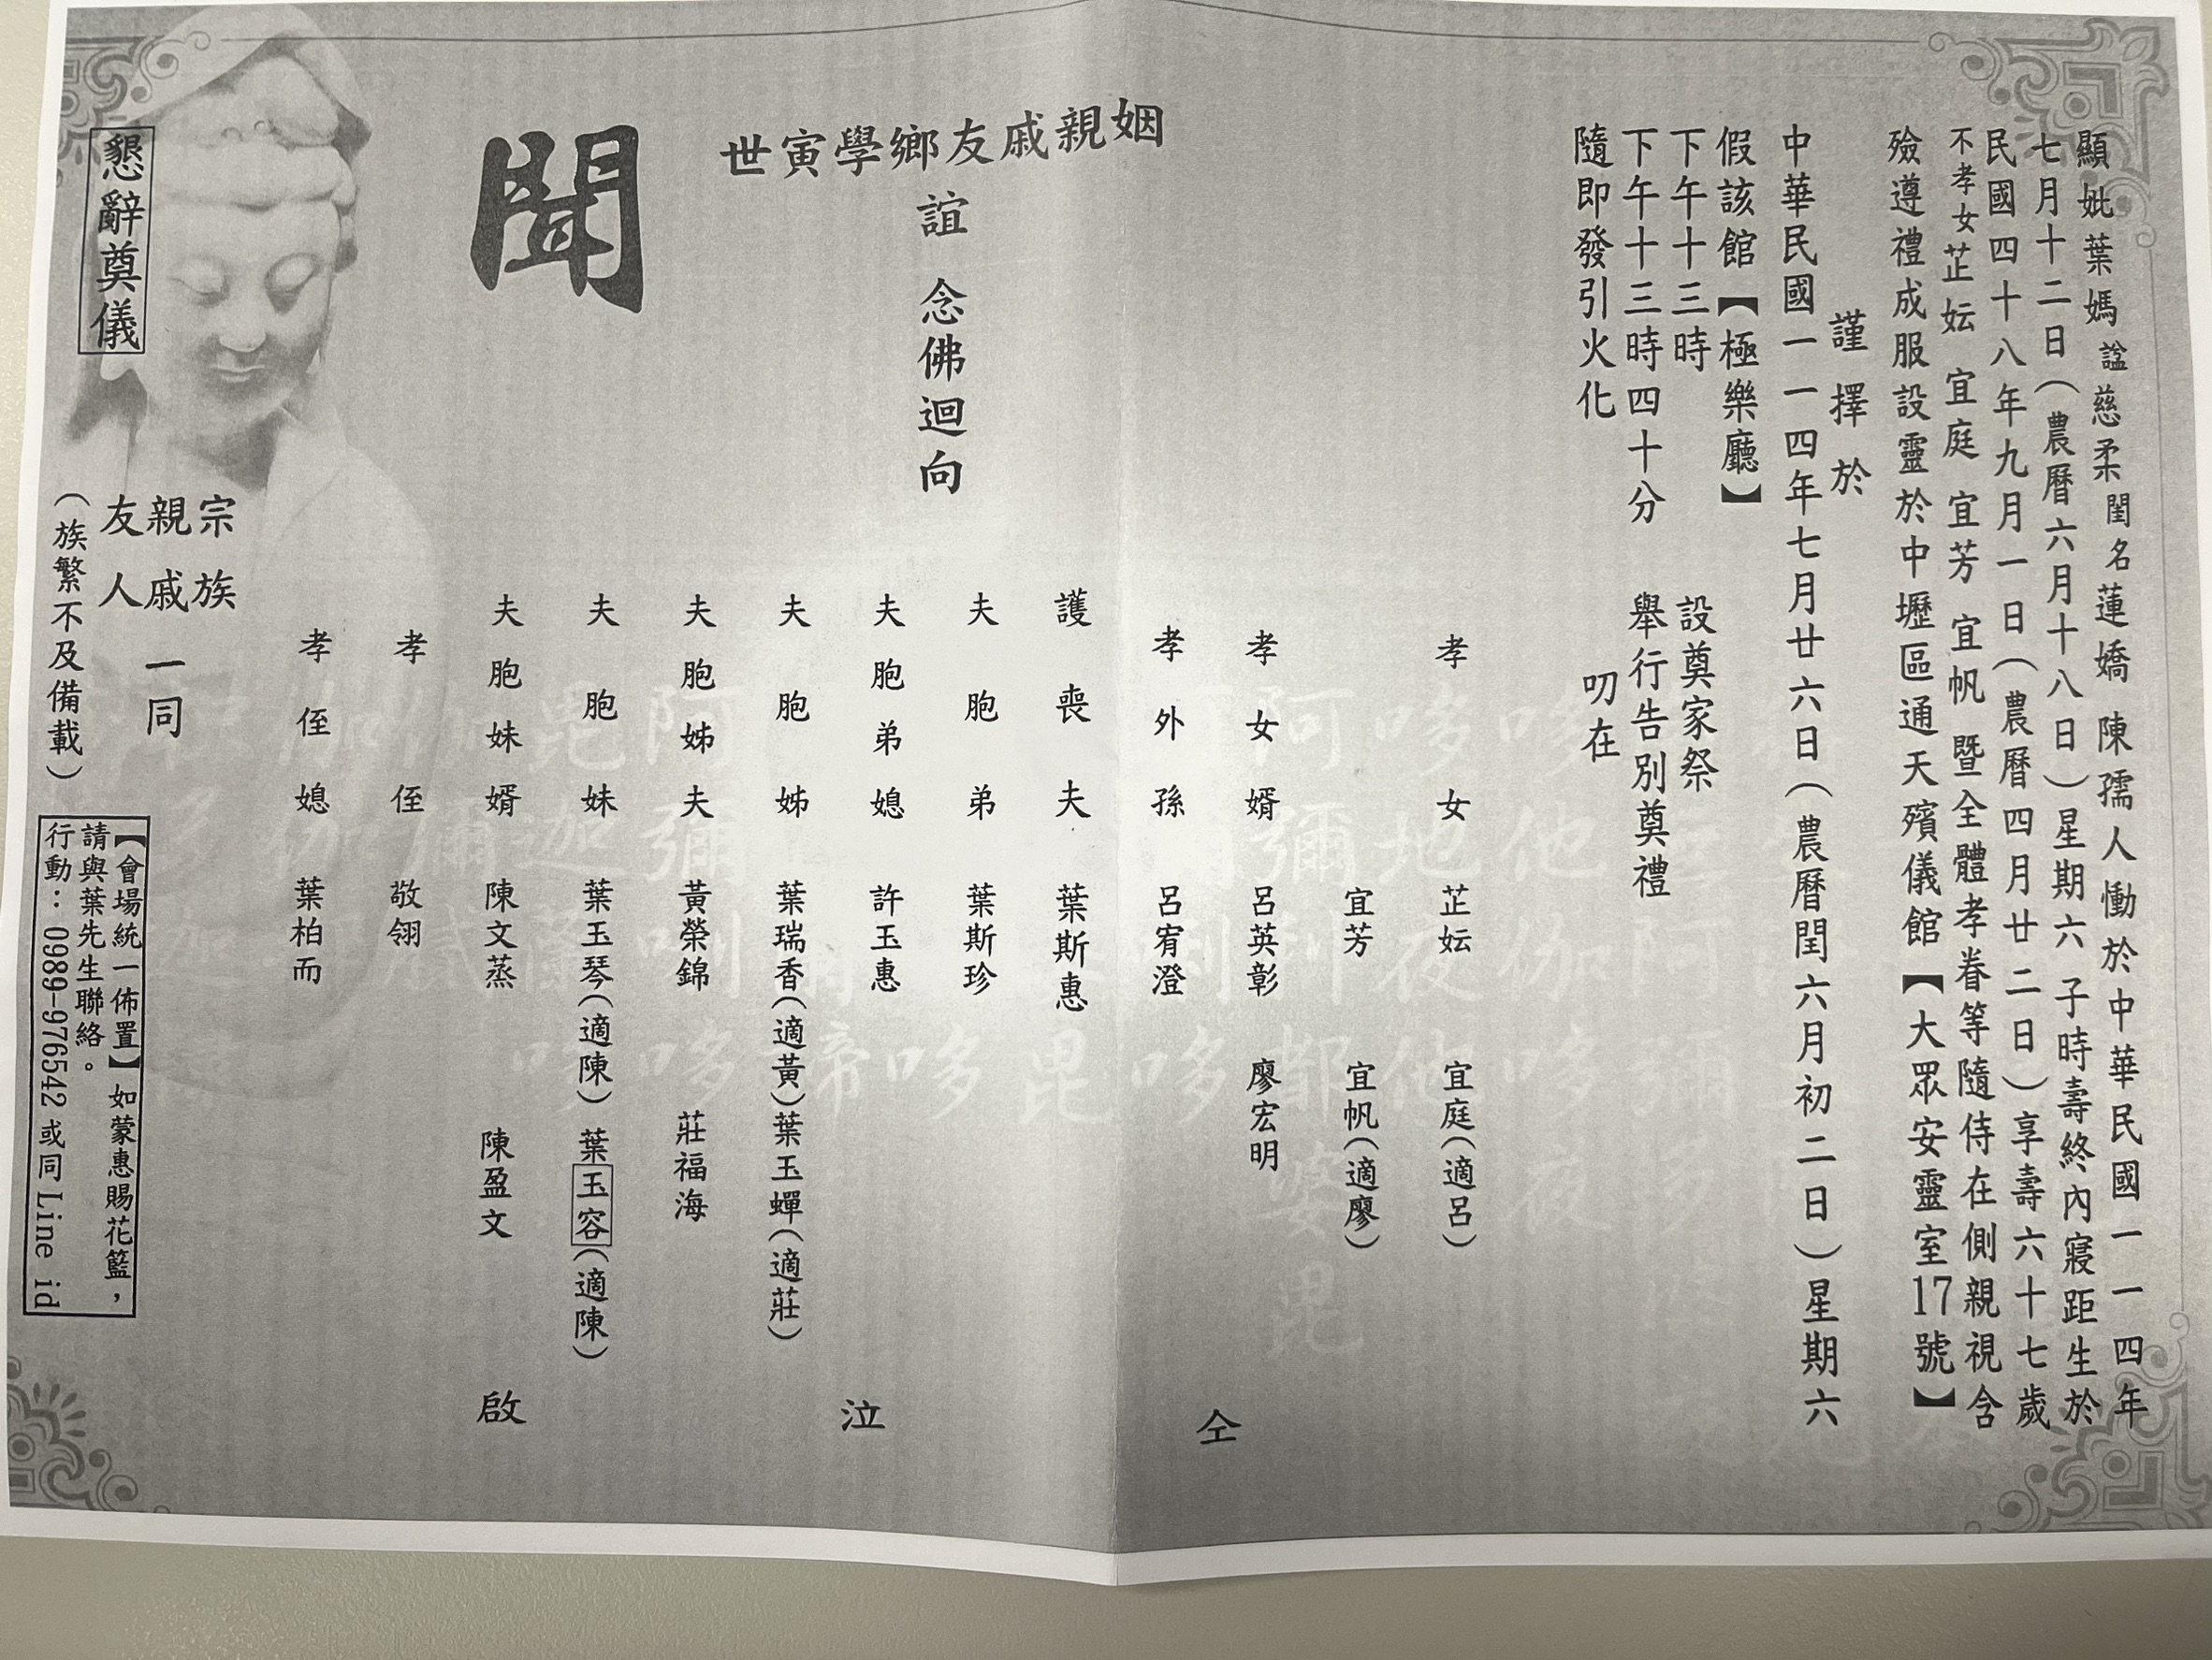 顯妣葉媽諡慈柔閨名蓮嬌 陳孺人慟於中華民國一一四年
七月十二日(農曆六月十八日)星期六 子時壽終內寢距生於
民國四十八年九月一日(農曆四月廿二日)享壽六十七歲
不孝女芷妘 宜庭 宜芳 宜帆 暨全體孝眷等隨侍在側親視含
殮遵禮成服設靈於中壢區通天殯儀館【大眾安靈室17號】
謹擇於
中華民國一一四年七月廿六日(農曆閏六月初二日)星期六
假該館【極樂廳】
下午十三時 設奠家祭
下午十三時四十分 舉行告別奠禮
隨即發引火化 叨在
姻親戚友鄉學寅世
誼 念佛迴向
聞
孝女 芷妘 宜庭(適呂)
宜芳 宜帆(適廖)
孝女婿 呂英彰 廖宏明
孝外孫 呂宥澄
護喪夫 葉斯惠
夫胞弟 葉斯珍
夫胞弟媳 許玉惠
夫胞姊 葉瑞香(適黃)葉玉蟬(適莊)
夫胞姊夫 黃榮錦 莊福海
夫胞妹 葉玉琴(適陳) 葉玉容(適陳)
夫胞妹婿 陳文蒸 陳盈文
孝侄 敬翎
孝侄媳 葉柏而
仝
泣
啟
宗族
親戚 一同
友人
(族繁不及備載)
懇辭奠儀
【會場統一佈置】如蒙惠賜花籃,
請與葉先生聯絡。
行動:0989-976542或同Line id